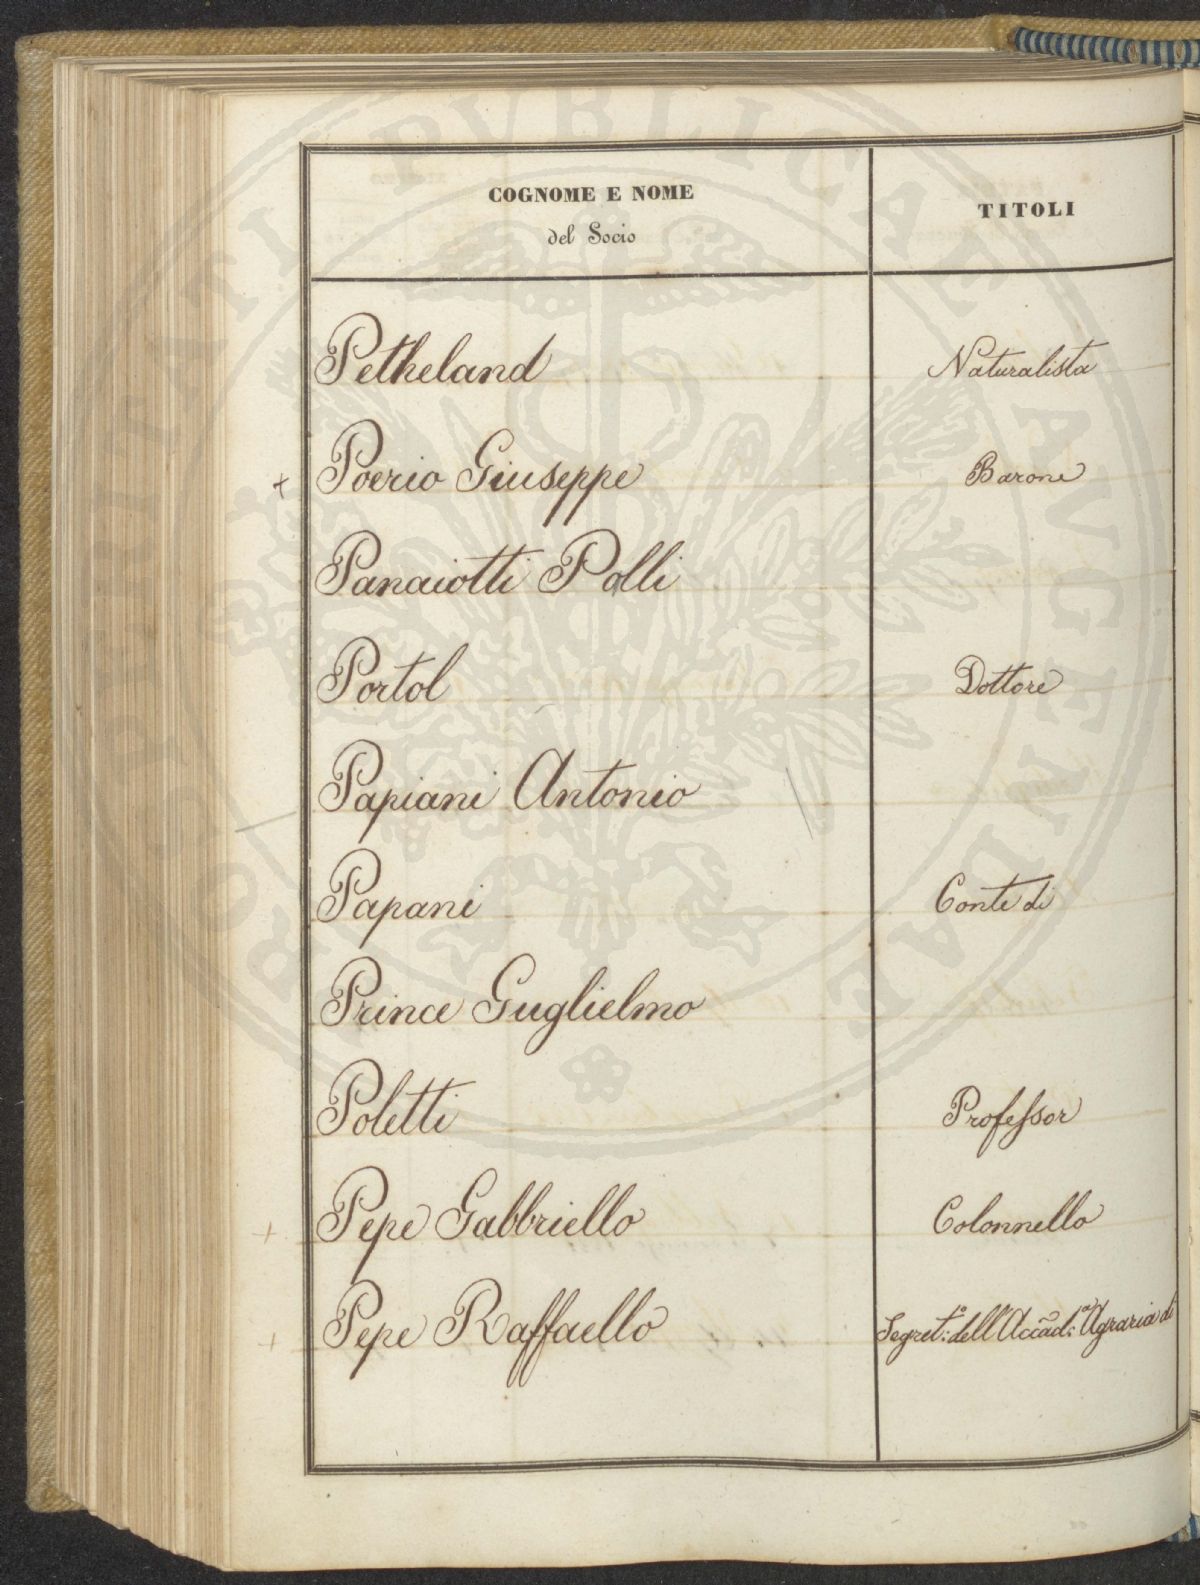 COGNOME E NOME
del Socio
TITOLI
Petheland Naturalista
+ Poerio Giuseppe Barone
Panaiotti Palli
Portol Dottore
Papiani Antonio
Papani Conte di
Prince Guglielmo
Poletti Professor
+ Pepe Gabbriello Colonnello
+ Pepe Raffaello Segret:º dell'Accad:ª Agraria di
PROSPERITATI PUBLICAE AUGENDAE